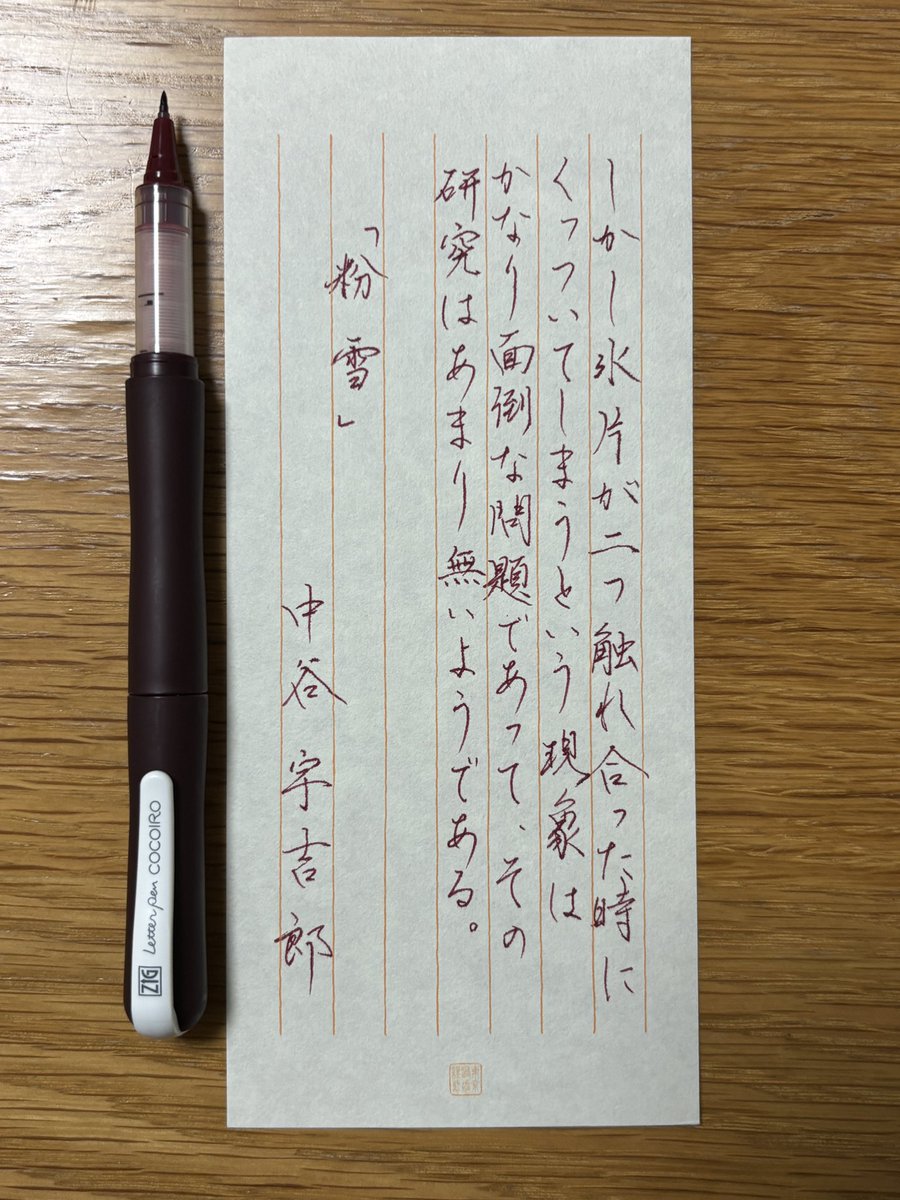 しかし氷片が二つ触れ合った時に
くっついてしまうという現象は
かなり面倒な問題であって、その
研究はあまり無いようである。
「粉雪」
中谷宇吉郎
ZIG Letter pen COCOIRO